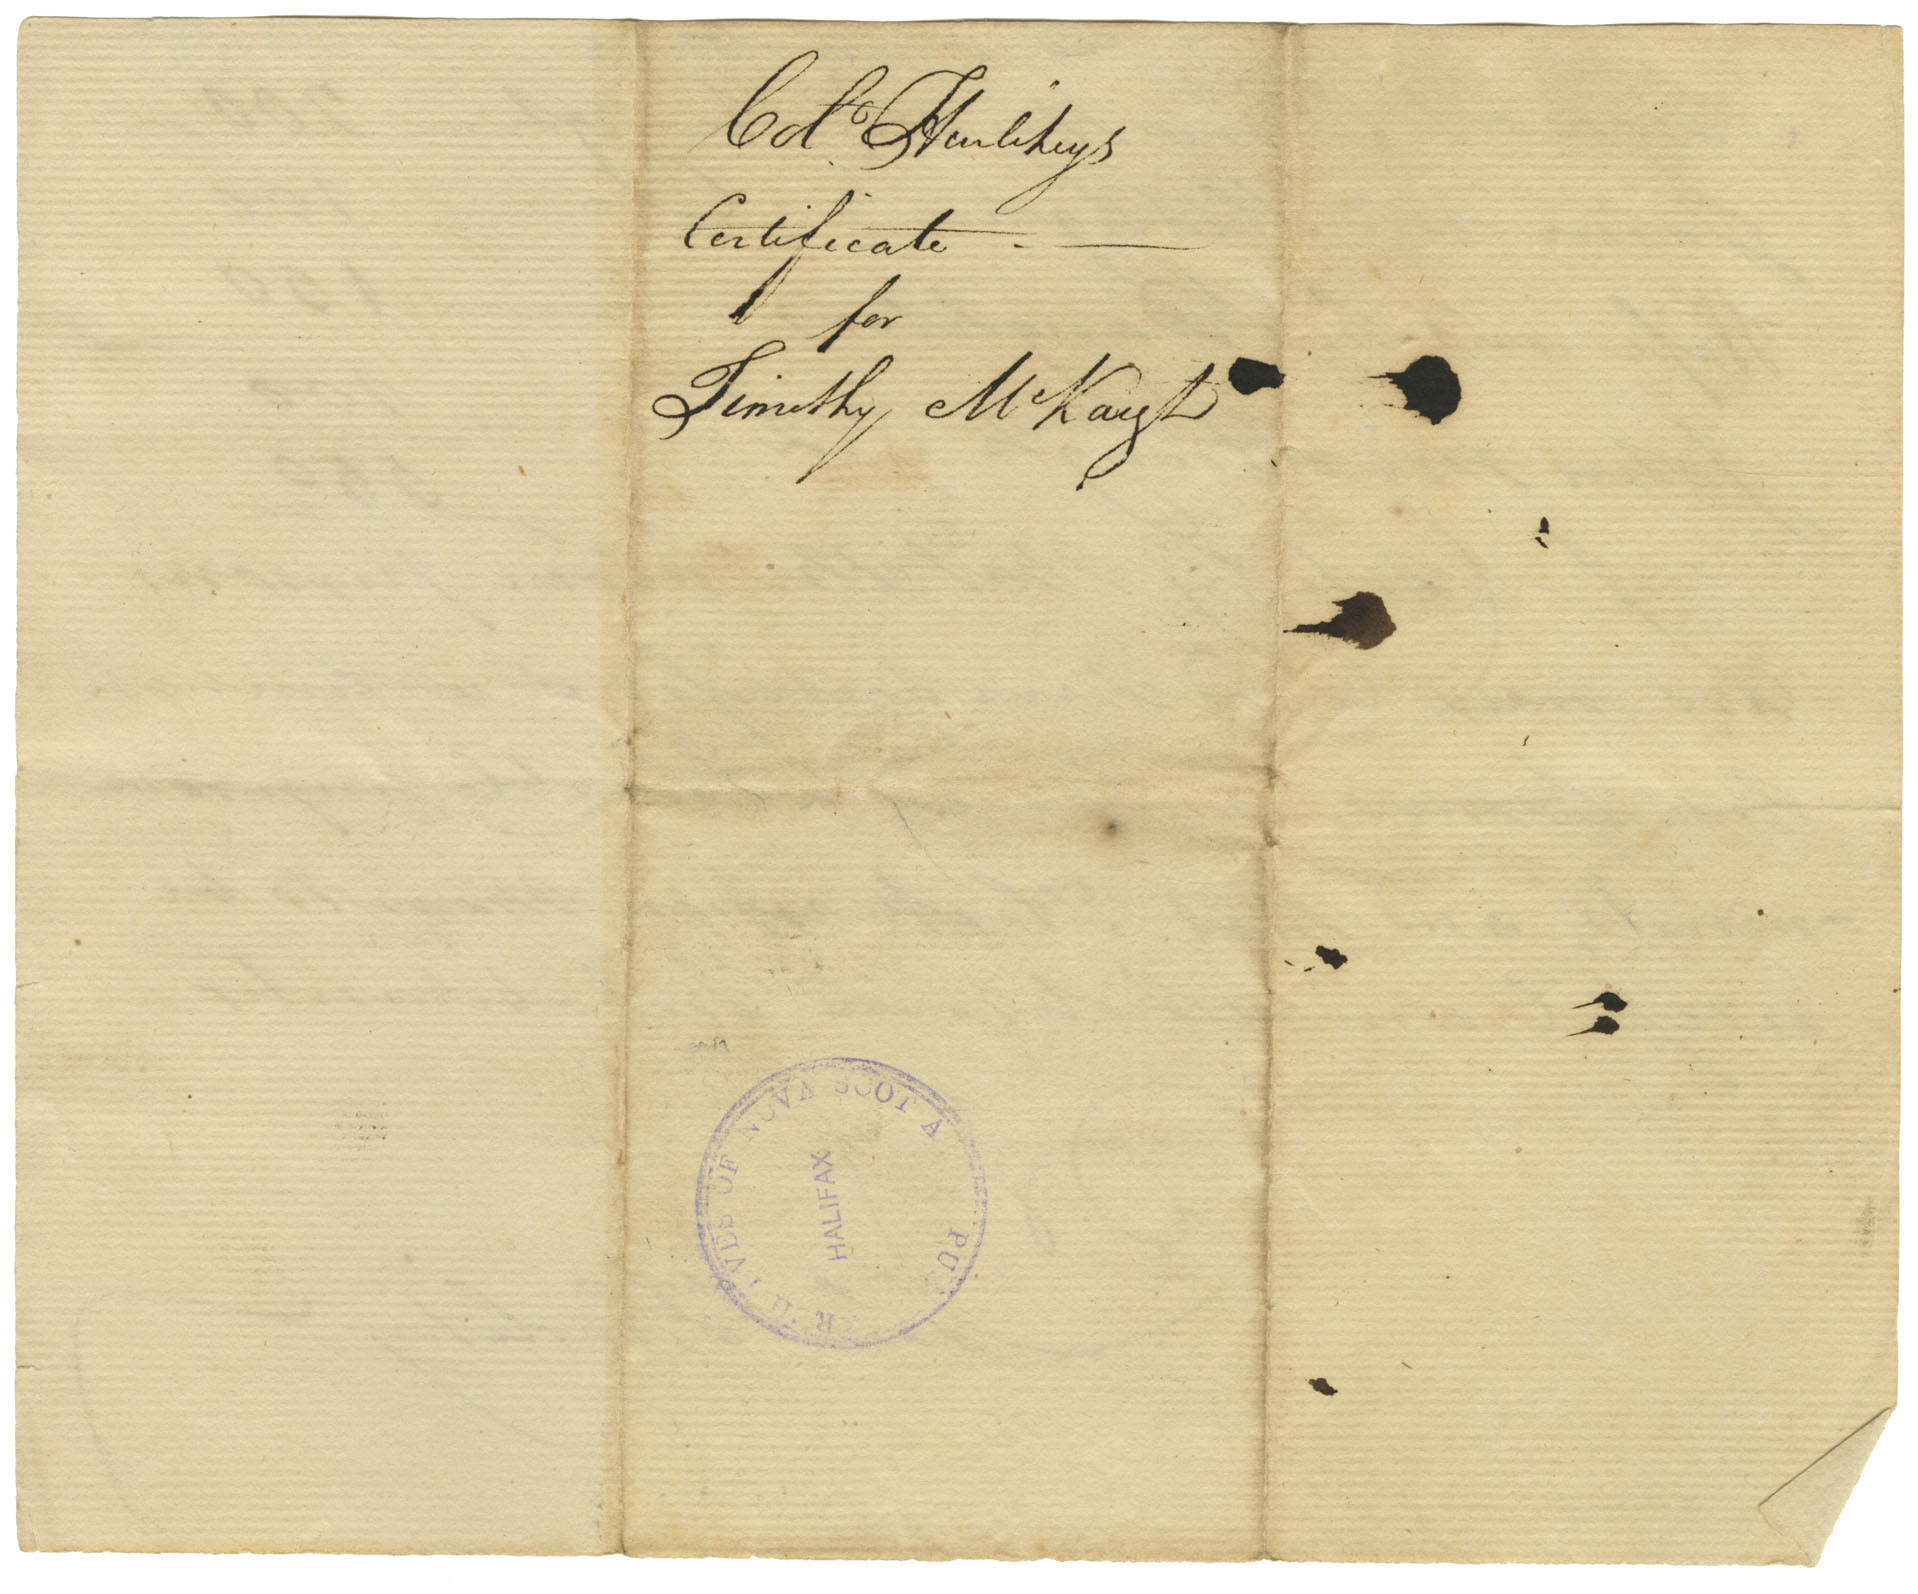 Colo Hierlihys
Certificate - —
for
Timothy
PUBLIC ARCHIVES OF NOVA SCOTIA
HALIFAX